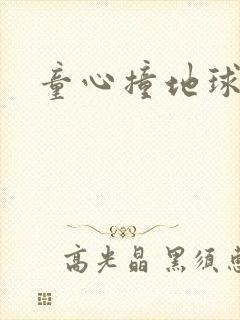 童心撞地球
高光晶 黑须惠